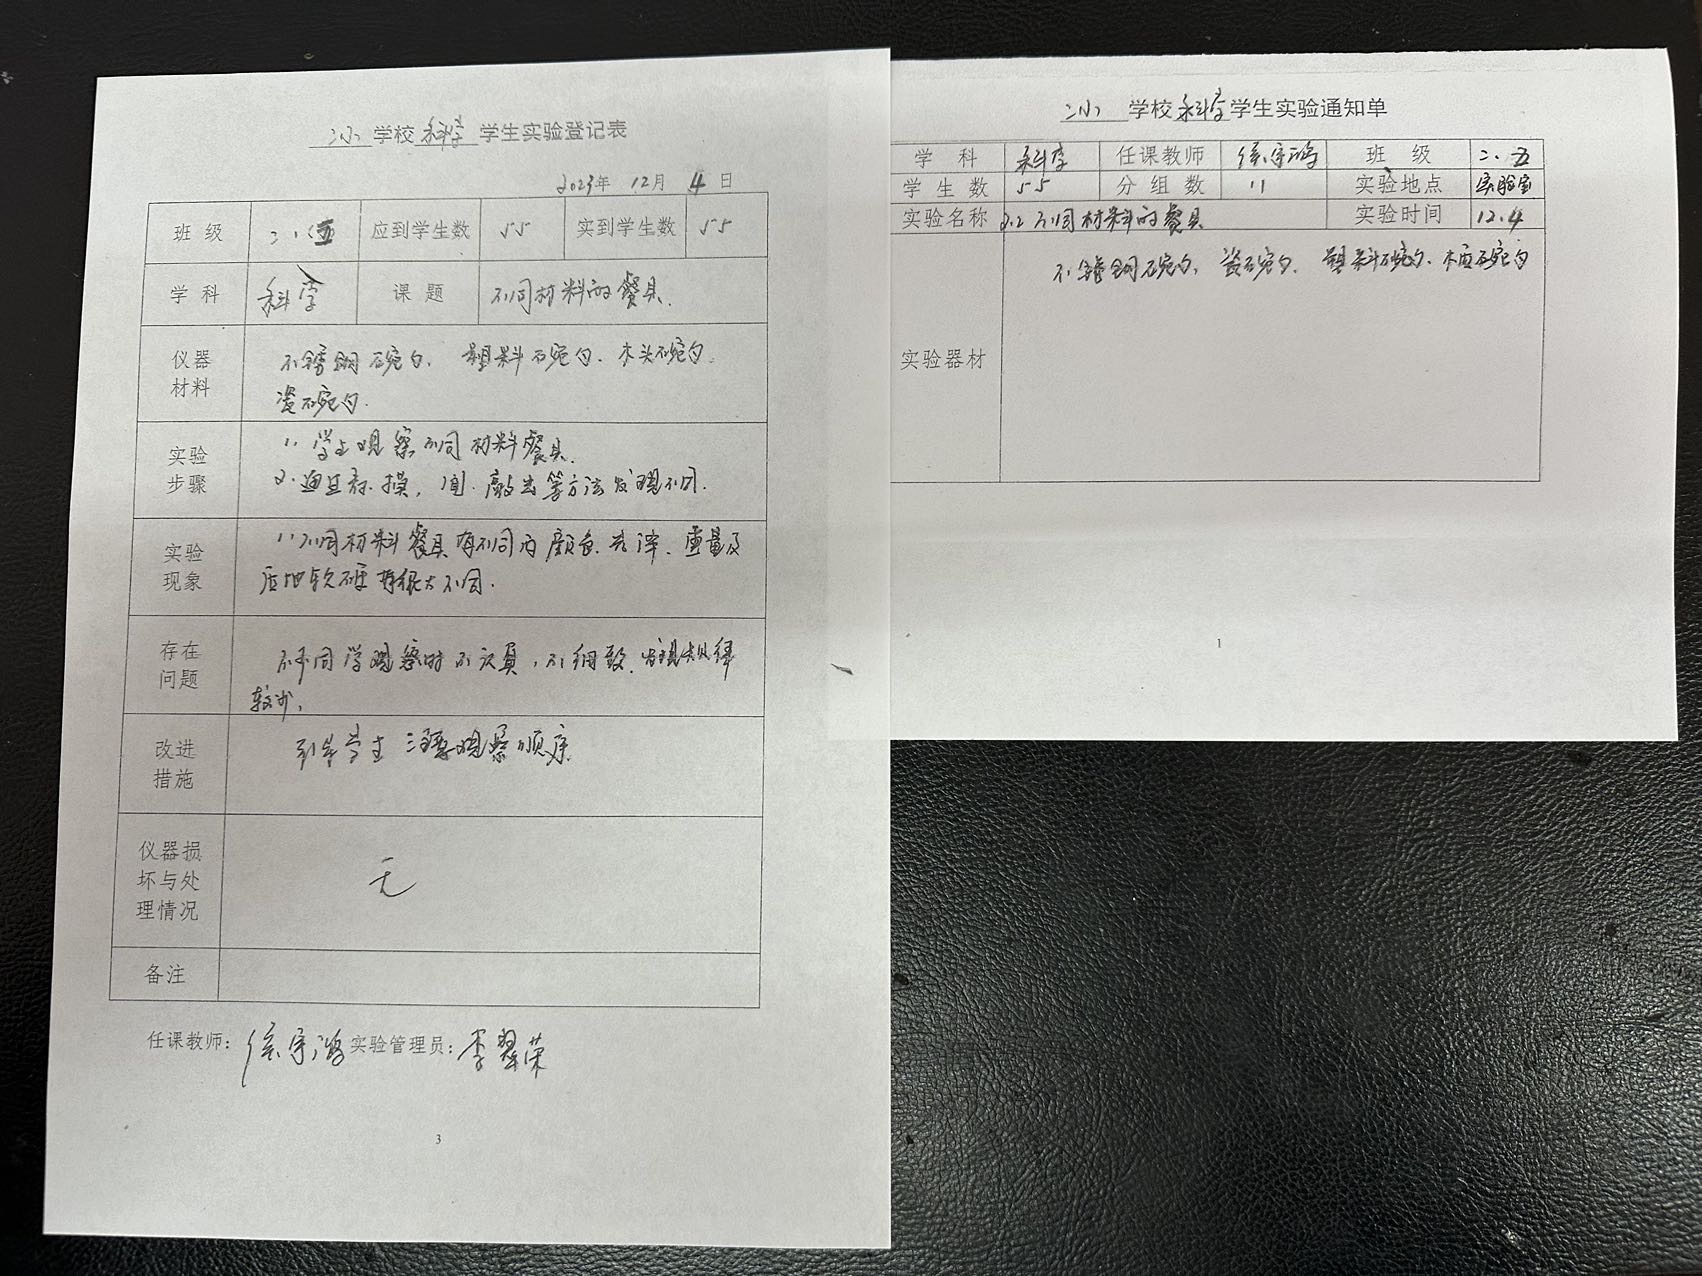 二小 学校 科学 学生实验登记表
2023年 12月 4日
班级 二.(五) 应到学生数 55 实到学生数 55
学科 科学 课题 不同材料的餐具.
仪器材料 不锈钢碗勺、塑料碗勺、木头碗勺、
瓷碗勺.
实验步骤 1、学生观察不同材料餐具.
2、通过看、摸、闻、敲击等方法发现不同.
实验现象 1、不同材料餐具有不同的颜色、光泽、重量及
质地软硬有很大不同.
存在问题 不同学观察时不认真,不细致,发现规律
较少.
改进措施 引导学生注意观察顺序
仪器损坏与处理情况 无
备注
任课教师: 徐宇鸿 实验管理员: 李翠荣
3
二小 学校 科学 学生实验通知单
学科 科学 任课教师 徐宇鸿 班级 二.五
学生数 55 分组数 11 实验地点 实验室
实验名称 2.2 不同材料的餐具 实验时间 12.4
实验器材 不锈钢碗勺、瓷碗勺、塑料碗勺、木碗勺
1